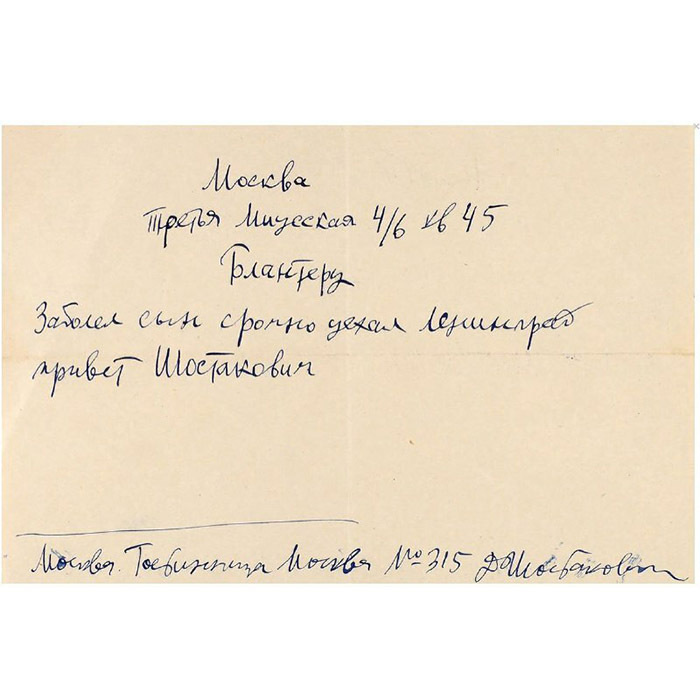 Москва
Третья Миусская 4/6 кв 45
Блантеру
Заболел сын срочно уехал Ленинград
привет Шостакович
Москва. Гостиница Москва № 315 ДШостакович